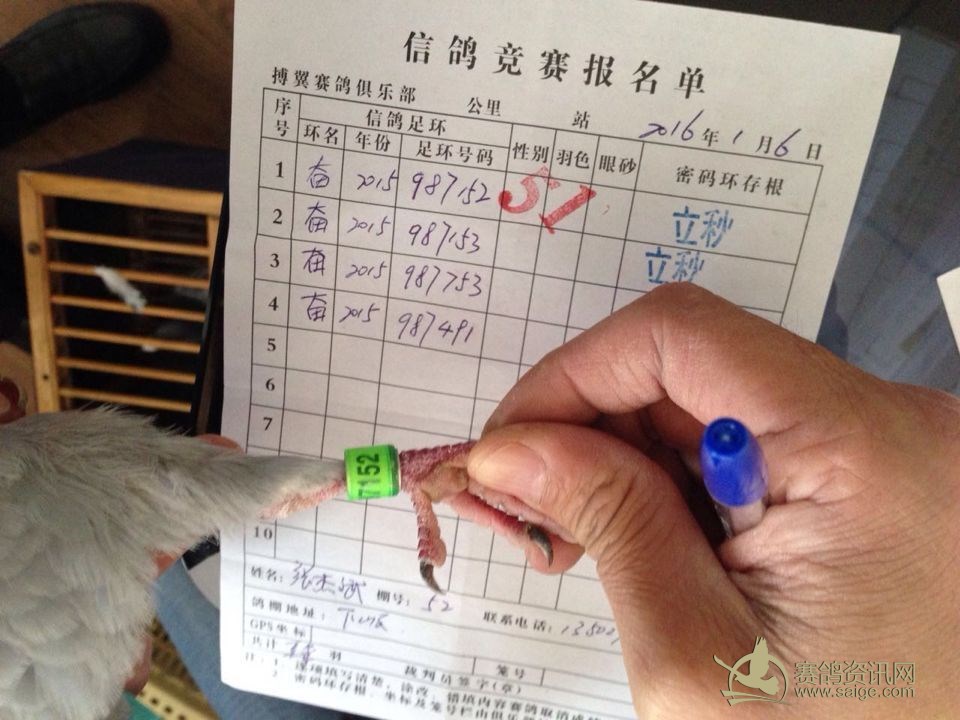 信鸽竞赛报名单
搏翼赛鸽俱乐部 公里 站 2016年1月6日
序号 信鸽足环 性别 羽色 眼砂 密码环存根
环名 年份 足环号码
1 奋 2015 987152 51 立秒
2 奋 2015 987153 立秒
3 奋 2015 987753
4 奋 2015 987491
5
6
7
7152
10
姓名: 张杰斌 棚号: 52 联系电话: 13502
鸽棚地址:
GPS坐标
共计 羽 裁判员签字(章) 笼号
注:1、逐项填写清楚、涂改、错填内容赛鸽取消成绩
2、密码环存根、坐标及笼号栏由俱乐
赛鸽资讯网
www.saigc.com